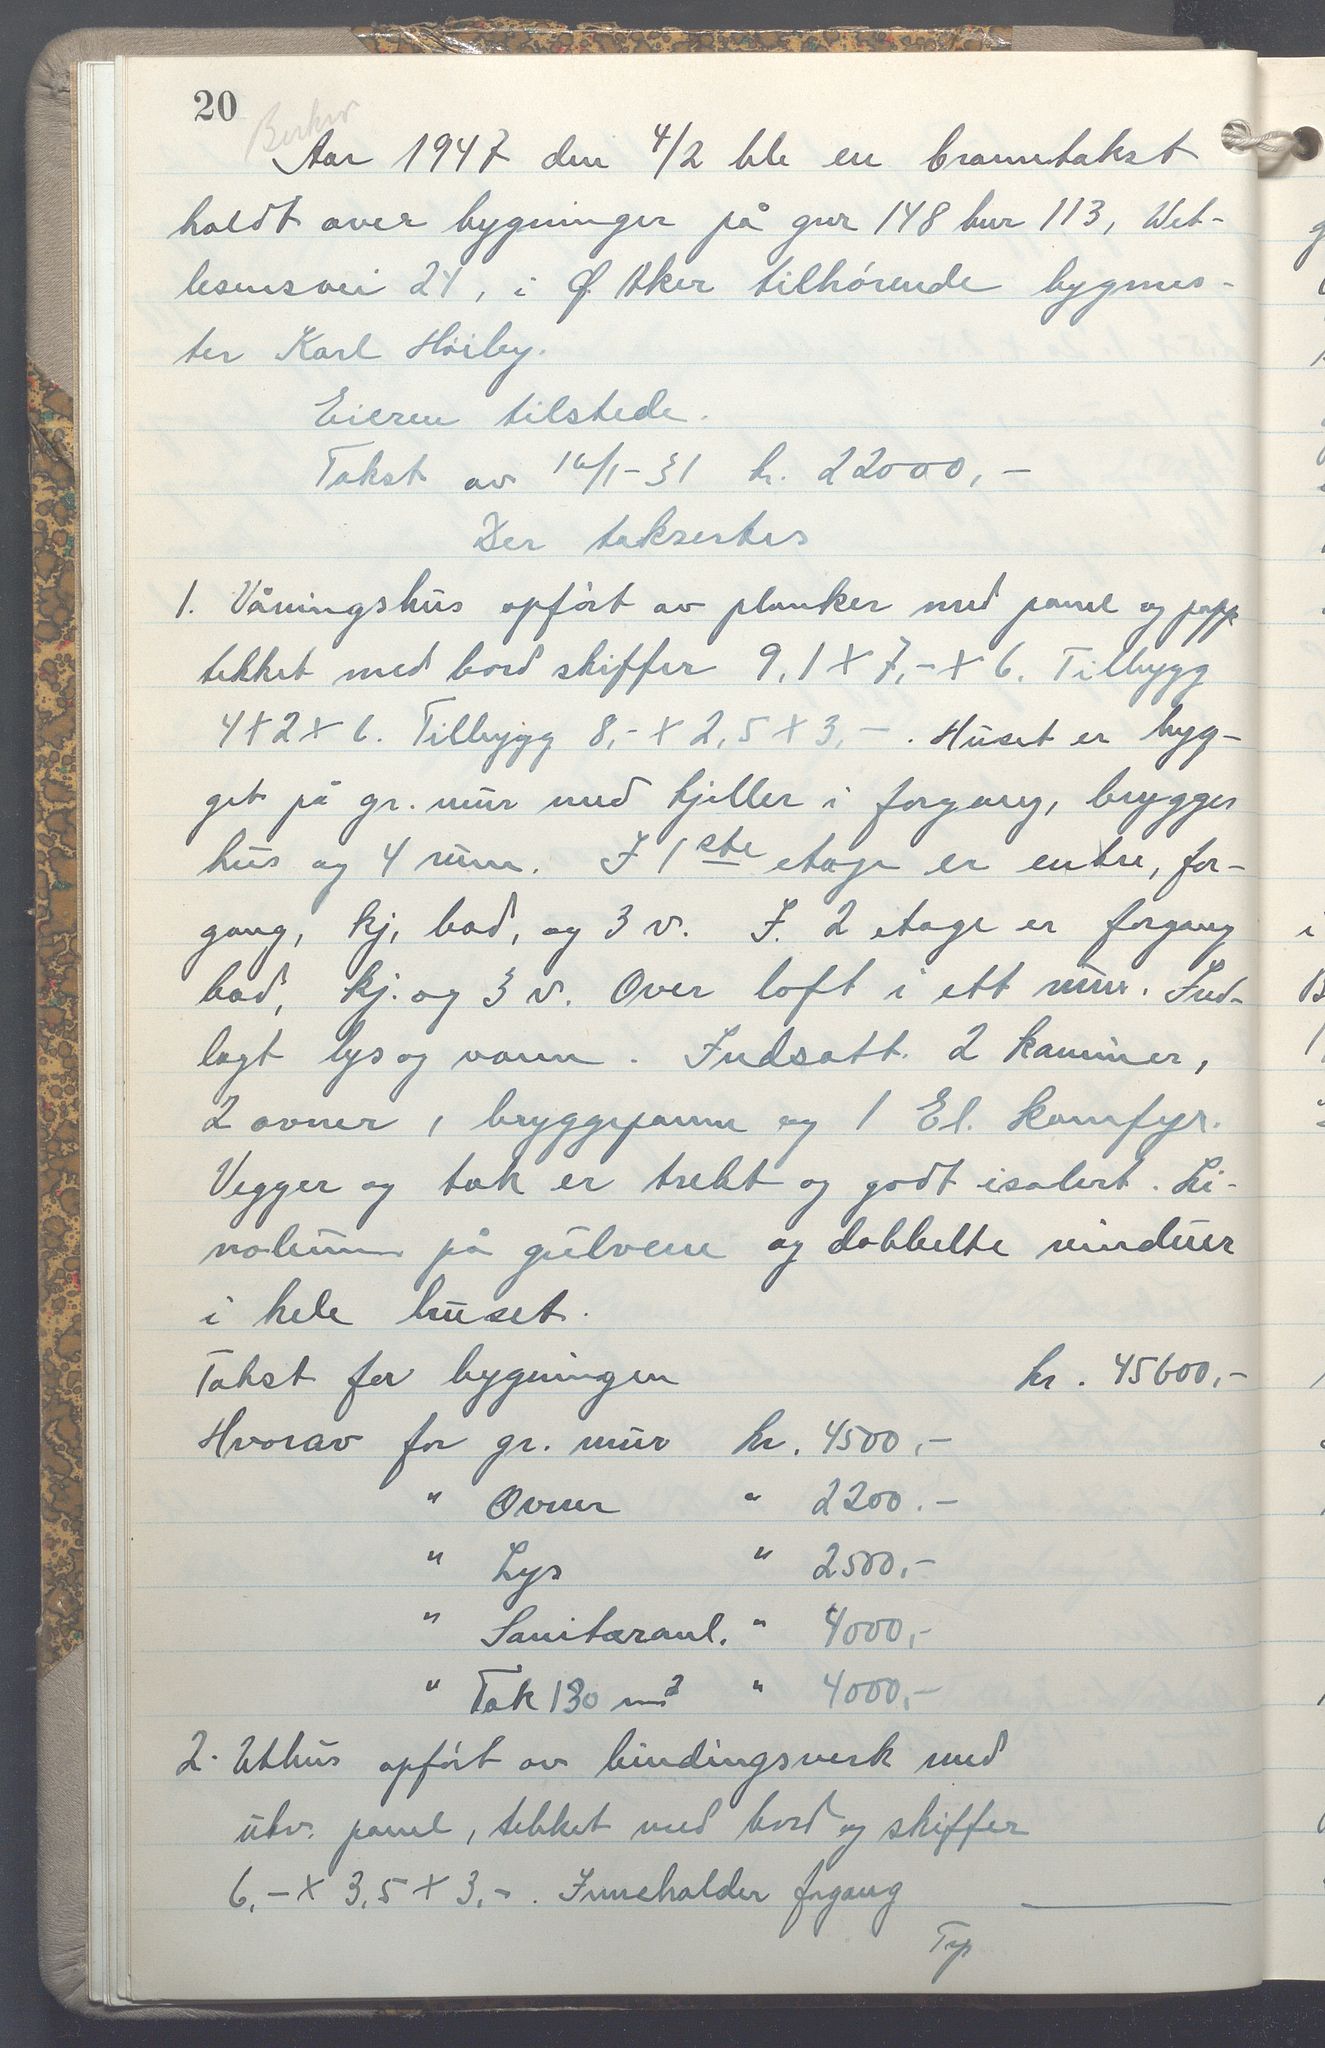 20
Aar 1947 den 4/2 ble en branntakst
holdt over bygninger på gnr 148 bnr 113, Wet-
lesensvei 24, i Ø. Aker tilhørende bygmes-
ter Karl Høiby.
Eieren tilstede.
Takst av 16/1-31 kr. 22000,-
Der takserter
1. Våningshus opført av planker med panel og papp
tekket med bord skiffer 9,1 X 7,- X 6. Tilbygg
4 X 2 X 6. Tilbygg 8,- X 2,5 X 3,-. Huset er byg-
get på gr. mur med kjeller i forgang, brygger
hus og 4 rum. I 1ste etage er entre, for-
gang, kj, bad, og 3 v. I. 2 etage er forgang
bad, kj. og 3 v. Over loft i ett rum. Ind-
lagt lys og vann. Indsatt 2 kaminer,
2 ovner, bryggepanne og 1 El. komfyr.
Vegger og tak er trekt og godt isolert. Li-
noleum på gulvene og dobbelte vinduer
i hele huset.
Takst for bygningen kr. 45600,-
Hvorav for gr. mur kr. 4500,-
" Ovner " 2200.-
" Lys " 2500,-
" Sanitæranl. " 4000,-
" Tak 130 m2 " 4000,-
2. Uthus opført av bindingsverk med
utv. panel, tekket med bord og skiffer
6,- X 3,5 X 3,-. Inneholder forgang